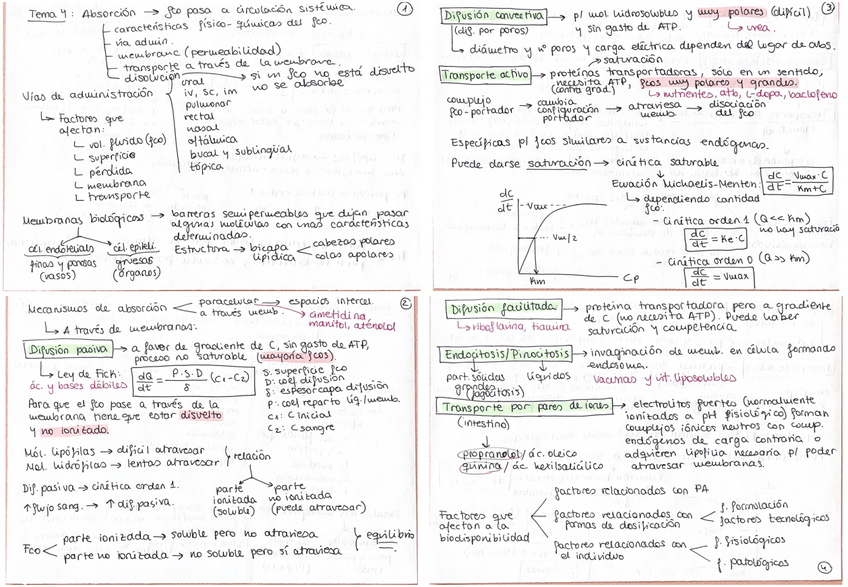 Tema 4: Absorción → fco pasa a circulación sistémica.
①
características físico-químicas del fco.
vía admin.
membrana (permeabilidad)
transporte a través de la membrana.
disolución → si un fco no está disuelto
no se absorbe
Vías de administración
oral
iv, sc, im
pulmonar
rectal
nasal
oftálmica
bucal y sublingual
tópica
↳ Factores que
afectan:
↳ vol. fluido (fco)
↳ superficie
↳ pérdida
↳ membrana
↳ transporte
Membranas biológicas → barreras semipermeables que dejan pasar
algunas moléculas con unas características
determinadas.
cél endoteliales
finas y porosas
(vasos)
cél. epiteli.
gruesas
(órganos)
Estructura → bicapa
lipídica
cabezas polares
colas apolares
②
Mecanismos de absorción
paracelular → espacios intercel.
a través memb.
cimetidina,
manitol, atenolol
↳ A través de membranas:
Difusión pasiva → a favor de gradiente de C, sin gasto de ATP,
proceso no saturable (mayoría fcos).
↳ Ley de Fick:
ác. y bases débiles
dQ/dt = P·S·D/δ (C1-C2)
S: superficie fco
D: coef difusión
δ: espesor capa difusión
P: coef reparto líq./memb.
C1: C inicial
C2: C sangre
Para que el fco pase a través de la
membrana tiene que estar disuelto
y no ionizado.
Mól. lipófilas → difícil atravesar
Mól. hidrófilas → lentas atravesar
relación
parte
ionizada
(soluble)
parte
no ionizada
(puede atravesar)
Dif. pasiva → cinética orden 1.
↑ flujo sang. → ↑ dif. pasiva.
Fco
parte ionizada → soluble pero no atraviesa
parte no ionizada → no soluble pero sí atraviesa
equilibrio
③
Difusión convectiva → p/ mol hidrosolubles y muy polares (difícil)
(dif. por poros)
y sin gasto de ATP.
↳ urea.
↳ diámetro y nº poros y carga eléctrica dependen del lugar de abs.
saturación
Transporte activo → proteínas transportadoras, sólo en un sentido,
necesita ATP, fcos muy polares y grandes.
(contra grad.)
↳ nutrientes, atb, L-dopa, baclofeno
complejo
fco-portador
→ cambia
configuración
portador
→ atraviesa
memb.
→ disociación
del fco
Específicas p/ fcos similares a sustancias endógenas.
Puede darse saturación → cinética saturable
Ecuación Michaelis-Menten:
dC/dt = Vmax·C/Km+C
↳ dependiendo cantidad
fco:
- Cinética orden 1 (Q << Km)
no hay saturació
dC/dt = Ke·C
- Cinética orden 0 (Q >> Km)
dC/dt = Vmax
dC/dt
Vmax
Vm/2
Km
Cp
Difusión facilitada → proteína transportadora pero a gradiente
de C (no necesita ATP). Puede haber
saturación y competencia.
↳ riboflavina, tiamina
Endocitosis/Pinocitosis → invaginación de memb. en célula formando
endosoma.
part. sólidas
grandes
(fagocitosis)
líquidos
vacunas y vit. liposolubles
Transporte por pares de iones → electrolitos fuertes (normalmente
ionizados a pH fisiológico) forman
complejos iónicos neutros con comp.
endógenos de carga contraria o
adquieren lipofilia necesaria p/ poder
atravesar membranas.
(intestino)
propranolol / ác. oleico
quinina / ác hexilsalicílico
Factores que
afectan a la
biodisponibilidad
factores relacionados con PA
factores relacionados con
formas de dosificación
f. formulación
factores tecnológicos
factores relacionados con
el individuo
f. fisiológicos
f. patológicos
④